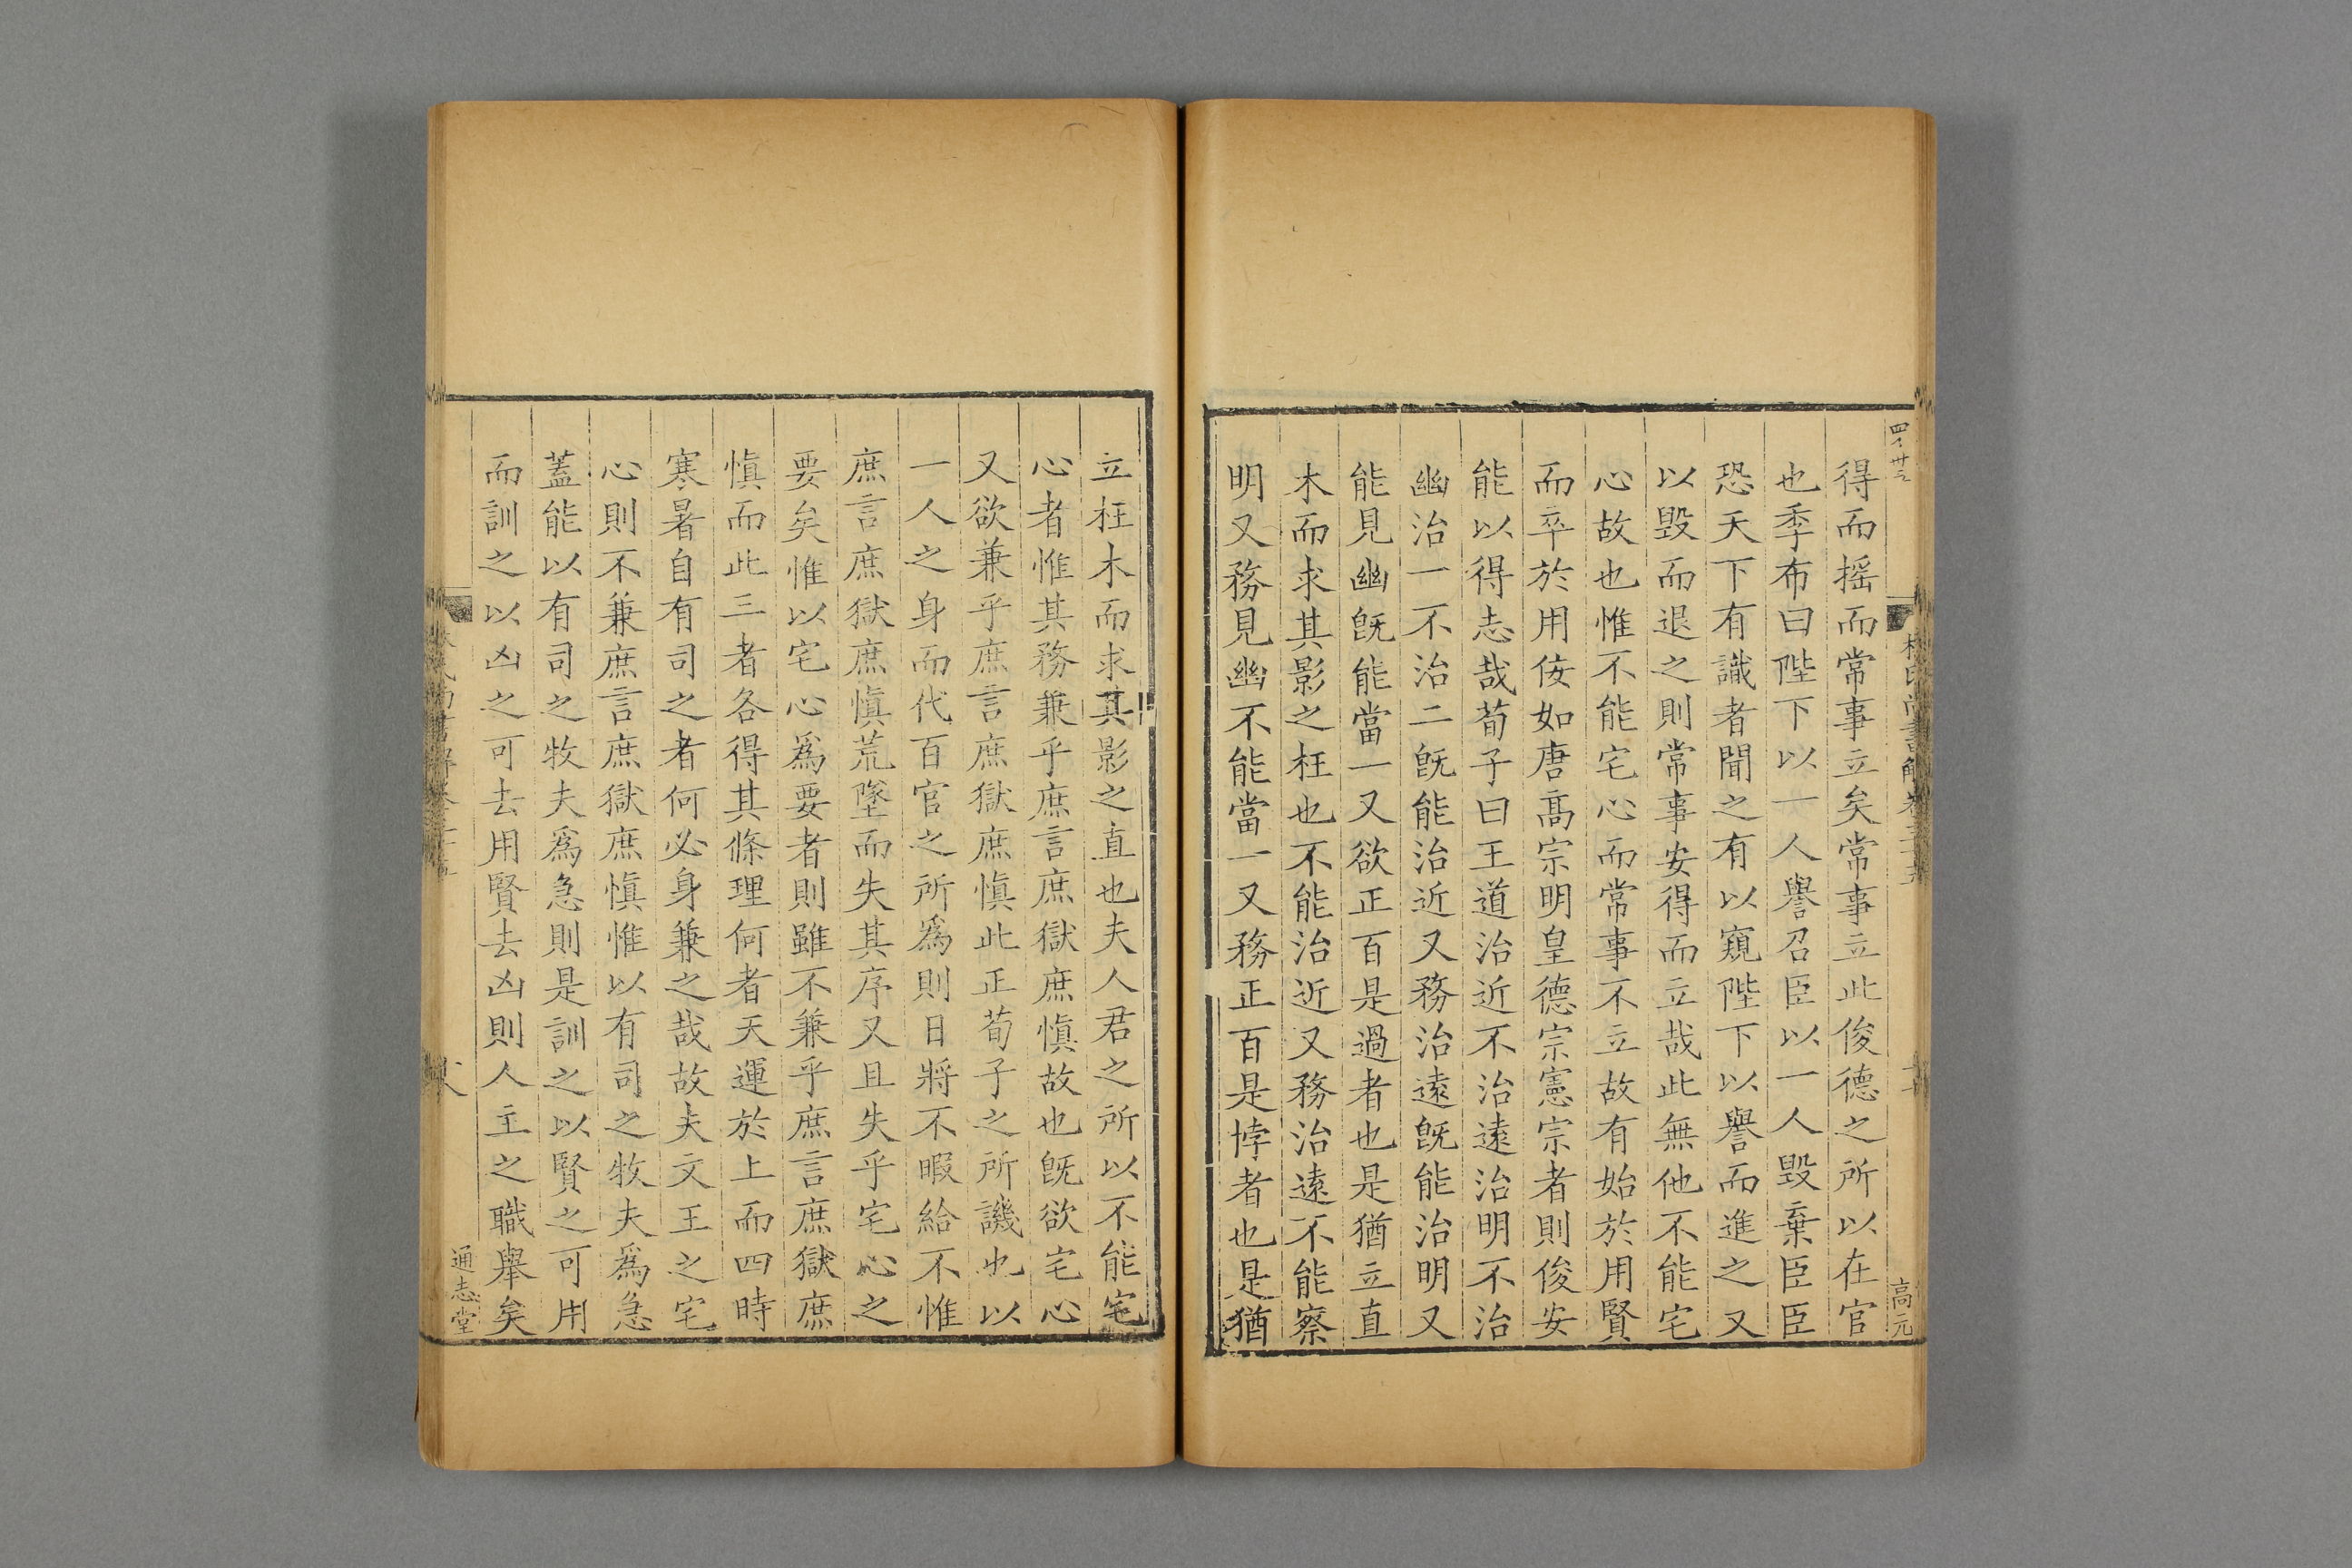 得而搖而常事立矣常事立此俊德之所以在官
也季布曰陛下以一人譽召臣以一人毀棄臣臣
恐天下有識者聞之有以窺陛下以譽而進之又
以毀而退之則常事安得而立哉此無他不能宅
心故也惟不能宅心而常事不立故有始於用賢
而卒於用佞如唐高宗明皇德宗憲宗者則俊安
能以得志哉荀子曰王道治近不治遠治明不治
幽治一不治二旣能治近又務治遠旣能治明又
能見幽旣能當一又欲正百是過者也是猶立直
木而求其影之枉也不能治近又務治遠不能察
明又務見幽不能當一又務正百是悖者也是猶
立枉木而求其影之直也夫人君之所以不能宅
心者惟其務兼乎庶言庶獄庶愼故也旣欲宅心
又欲兼乎庶言庶獄庶愼此正荀子之所譏也以
一人之身而代百官之所爲則日將不暇給不惟
庶言庶獄庶愼荒墜而失其序又且失乎宅心之
要矣惟以宅心爲要者則雖不兼乎庶言庶獄庶
愼而此三者各得其條理何者天運於上而四時
寒暑自有司之者何必身兼之哉故夫文王之宅
心則不兼庶言庶獄庶愼惟以有司之牧夫爲急
蓋能以有司之牧夫爲急則是訓之以賢之可用
而訓之以凶之可去用賢去凶則人主之職舉矣
通志堂
高元